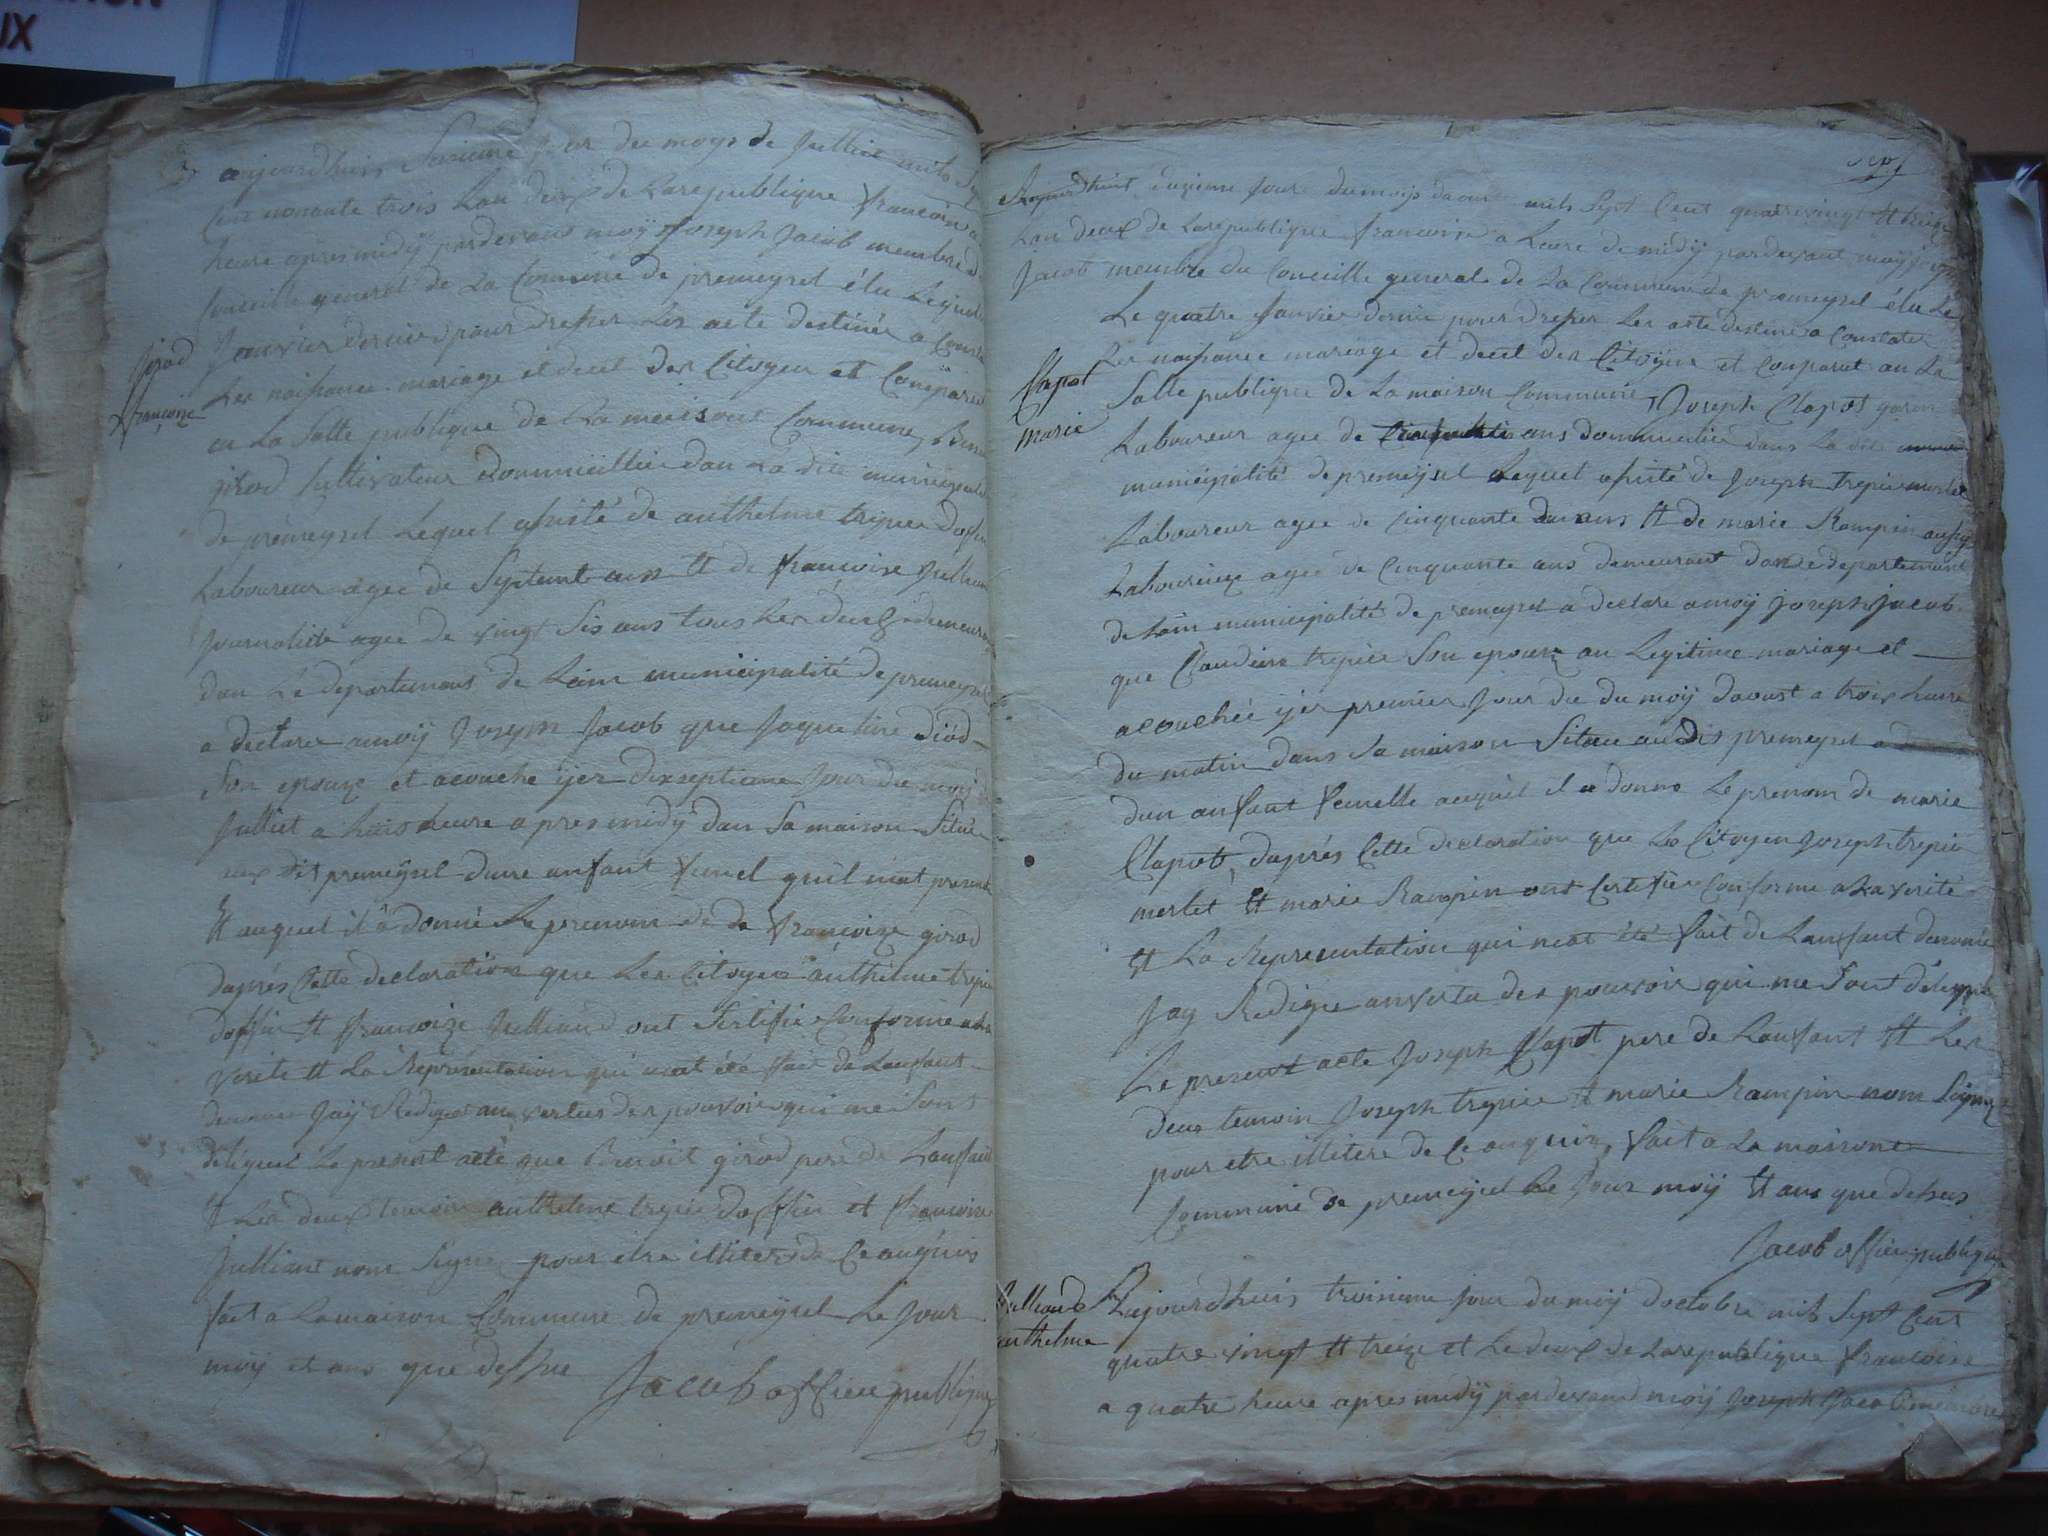 UX
aujourdhuis jour du moys de Juillie mils
cen nonante trois Lan deux de Larepublique francoise a
heure apres midÿ pardevans moÿ Joseph Jacob membre d
Conseille general de La Commune de premeysel élu Le
Janvier dernier pour dresser Les acte destinés a Const
Girod
francoise
Les naissance mariage et decet des Citoyen et Comparu
en La Salle publique de La maison Commune, Benoi
girod Cultivateur dommeillier dan La dite municipalit
de premeysel Lequel assisté de anthelme trepier doffin
Laboureur agee de Septente ans et de francoise Julliand
Journaliere agee de vingt Sis ans tous Les deux demeuran
dan Le departemans de Lain municipalité de premeysel
a declare amoÿ Joseph Jacob que Jaqueline diod
Son epouze et acouche ÿer dixseptieme Jour du moÿ d
Julliet a huis heure apres midÿ dan Sa maison Situé
aux dit premeÿsel dune anfant femel quil mat presen
et auquel il a donné Le prenom de de francoize girod
daprés Cette declaration que Les Citoyen anthelme trepier
doffin et francoize Julliand ont Sertifie Conforme a La
verite et La Représentation qui mat été fait de Lanfant
denome Jaÿ Redigé an vertus des pouvoir qui me Sont
deligués Le present acte que Benoit girod pere de Lanfant
et Les deux temoin anthelme trepier doffin et francoise
Julliant nom Signe pour etre illiteré de Ce anquis
fait a Lamaison Commune de premeÿsel Le Jour
moÿ et ans que dessus
Jacob officier publique
Aujourdhuit duzieme Jour dumoÿs daoust mils Sept Cent quatrevingt et treize
Lan deux de Larepublique francoise a heure de midÿ pardevant moÿ Joseph
Jacob membre du Conseille general de La Commune de premeysel élu Le
Le quatre Janvier dernie pour dresser Les acte destine a Constater
Les naissance mariage et decet des Citoÿen et Comparut an La
Clapot
marie
Salle publique de La maison Commune, Joseph Clapot garin
Laboureur agee de ans dommeillie dans La dite
municipalité de premeÿsel Lequel assisté de Joseph trepier merlet
Laboureur agee de Cinquante ans et de marie Rampin aussy
Laboureuze agee de Cinquante ans demeurant dan Le departemant
de Lain municipalité de premeysel a declare amoÿ Joseph Jacob
que Claudine trepier Son epouze an Legitime mariage et
acouchée ÿer premier Jour du du moÿ daoust a trois heure
du matin dans Sa maison Situee audit premeysel
dun anfant femelle auquel il a donne Le prenom de marie
Clapot, daprés Cette declaration que Les Citoyen Joseph trepier
merlet et marie Rampin ont Certifier Conforme a La verité
et La Representation qui mat été fait de Lanfant denomé
Jay Redige anvertu des pouvoir qui me Sont délegué
Le present acte Joseph Clapot pere de Lanfant et Les
deux temoin Joseph trepier et marie Rampin nom Signe
pour etre illitere de Ce anquis, fait a La maisone
Commune de premeysel Le Jour moÿ et ans que dessus
Jacob officier publique
Julliand
anthelme
Aujourdhuis troisieme Jour du moÿ doctobre mils Sept Cent
quatre vingt et treize et Le deux de Larepublique francoise
a quatre heure apres midÿ pardevand moÿ Joseph Jacob membre